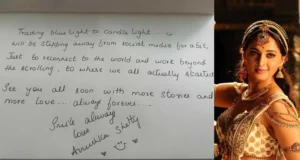 Trading blue light to candle light.....
will be stepping away from social media for a bit,
Just to reconnect to the world and work beyond
the scrolling, to where we all actually started
See you all soon with more stories and
more love... always forever....
Smile always
love
Anushka Shetty